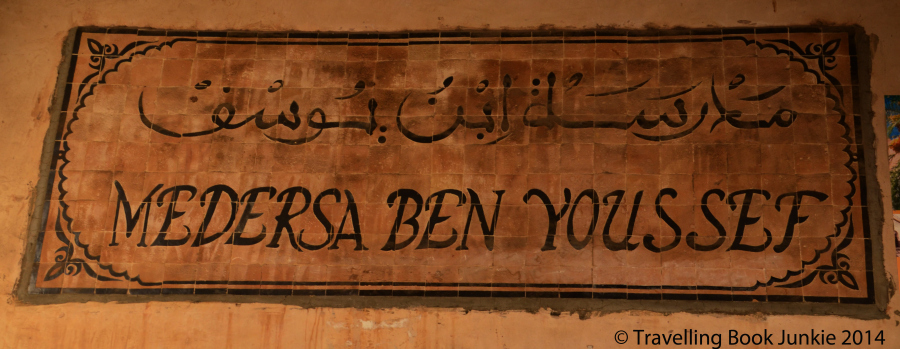 مَدْرَسَـة اِبْنُ يُوسُفْ
MEDERSA BEN YOUSSEF
© Travelling Book Junkie 2014